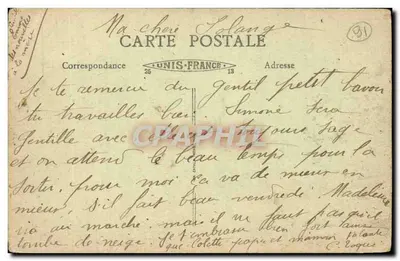 Ma chère Solange
CARTE POSTALE
Correspondance
UNIS-FRANCE
Adresse
91
à la mère
Je te remercie du gentil petit bavoir
tu travailles bien Simone sera
gentille avec toujours sage
CPARAPHIL
et on attend le beau temps pour la
sortir, pour moi ça va de mieux en
mieux, s'il fait beau vendredi Madeleine
ira au marché mais il ne faut pas qu'il
tombe de neige. Je t'embrasse bien fort
que Colette papa et maman